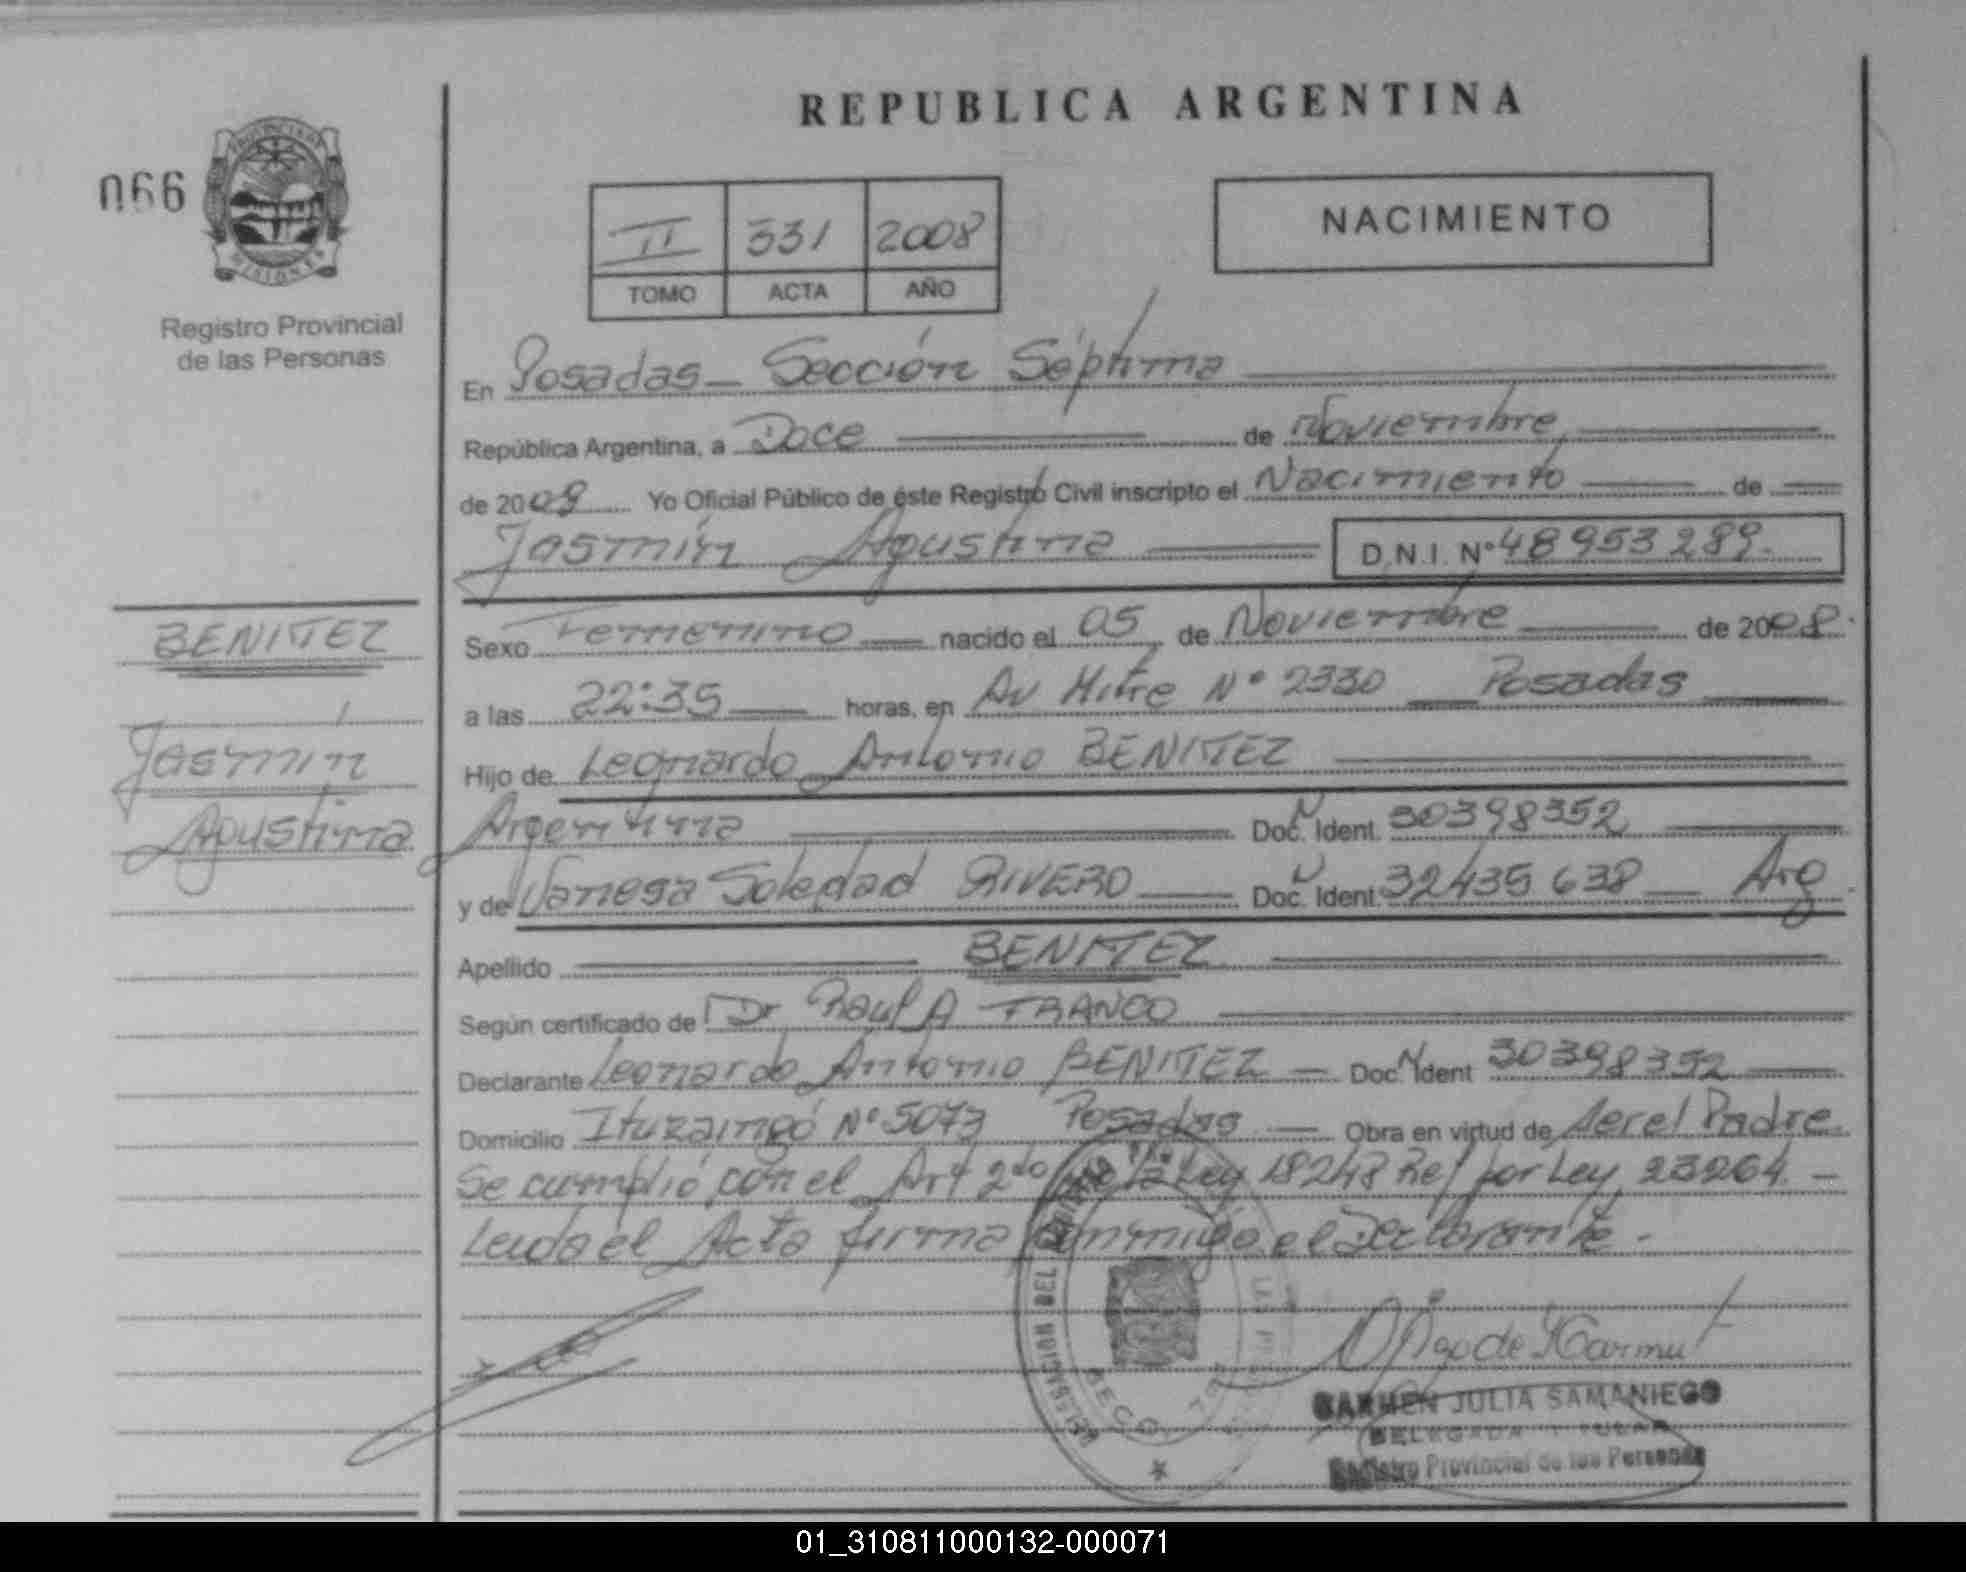 REPUBLICA ARGENTINA
066
PROVINCIA DE MISIONES
Registro Provincial
de las Personas
II 331 2008
TOMO ACTA AÑO
NACIMIENTO
En Posadas - Sección Séptima
República Argentina, a Doce de Noviembre
de 2008 Yo Oficial Público de éste Registro Civil inscripto el Nacimiento de
Jasmín Agustina D.N.I. Nº 48953289.
BENITEZ
Jasmín
Agustina
Sexo Femenino nacido el 05 de Noviembre de 2008.
a las 22:35 horas, en Av Mitre Nº 2330 Posadas
Hijo de Leonardo Antonio BENITEZ
Argentina Doc. N Ident. 30398352
y de Vanesa Soledad RIVERO Doc. N Ident. 32435638 Arg.
Apellido BENITEZ
Según certificado de Dr Raul A FRANCO
Declarante Leonardo Antonio BENITEZ Doc. N Ident 30398352
Domicilio Ituzaingó Nº 5073 Posadas Obra en virtud de ser el Padre.
Se cumplió con el Art 2do de la Ley 18248 Ref por Ley 23264. -
Leída el Acta firma conmigo el Declarante.-
CARMEN JULIA SAMANIEGO
DELEGADA TITULAR
Registro Provincial de las Personas
01_310811000132-000071